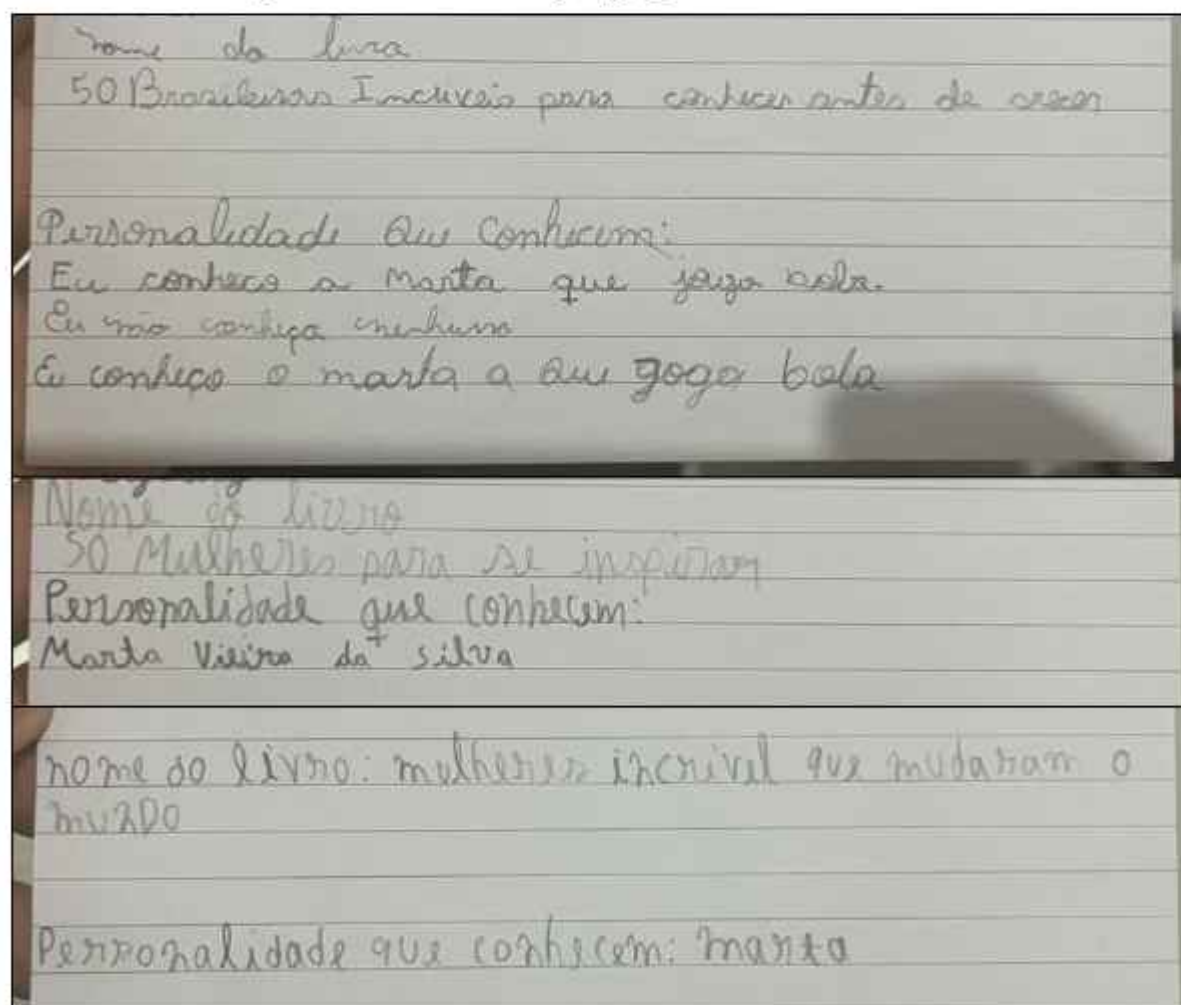 nome do livra
50 Brasileiras Incriveis para conhecer antes de crescer
Personalidade Que Conhecem:
Eu conheco a Marta que joga bola.
Eu não conheça nenhuma
Eu conheço o marta a Que goga bola
Nome do livro
50 Mulheres para se inspiram
Personalidade que conhecem:
Marta Vieira da silva
nome do livro: mulheres incrivel que mudaram o
muNDO
Personalidade que conhecem: marta